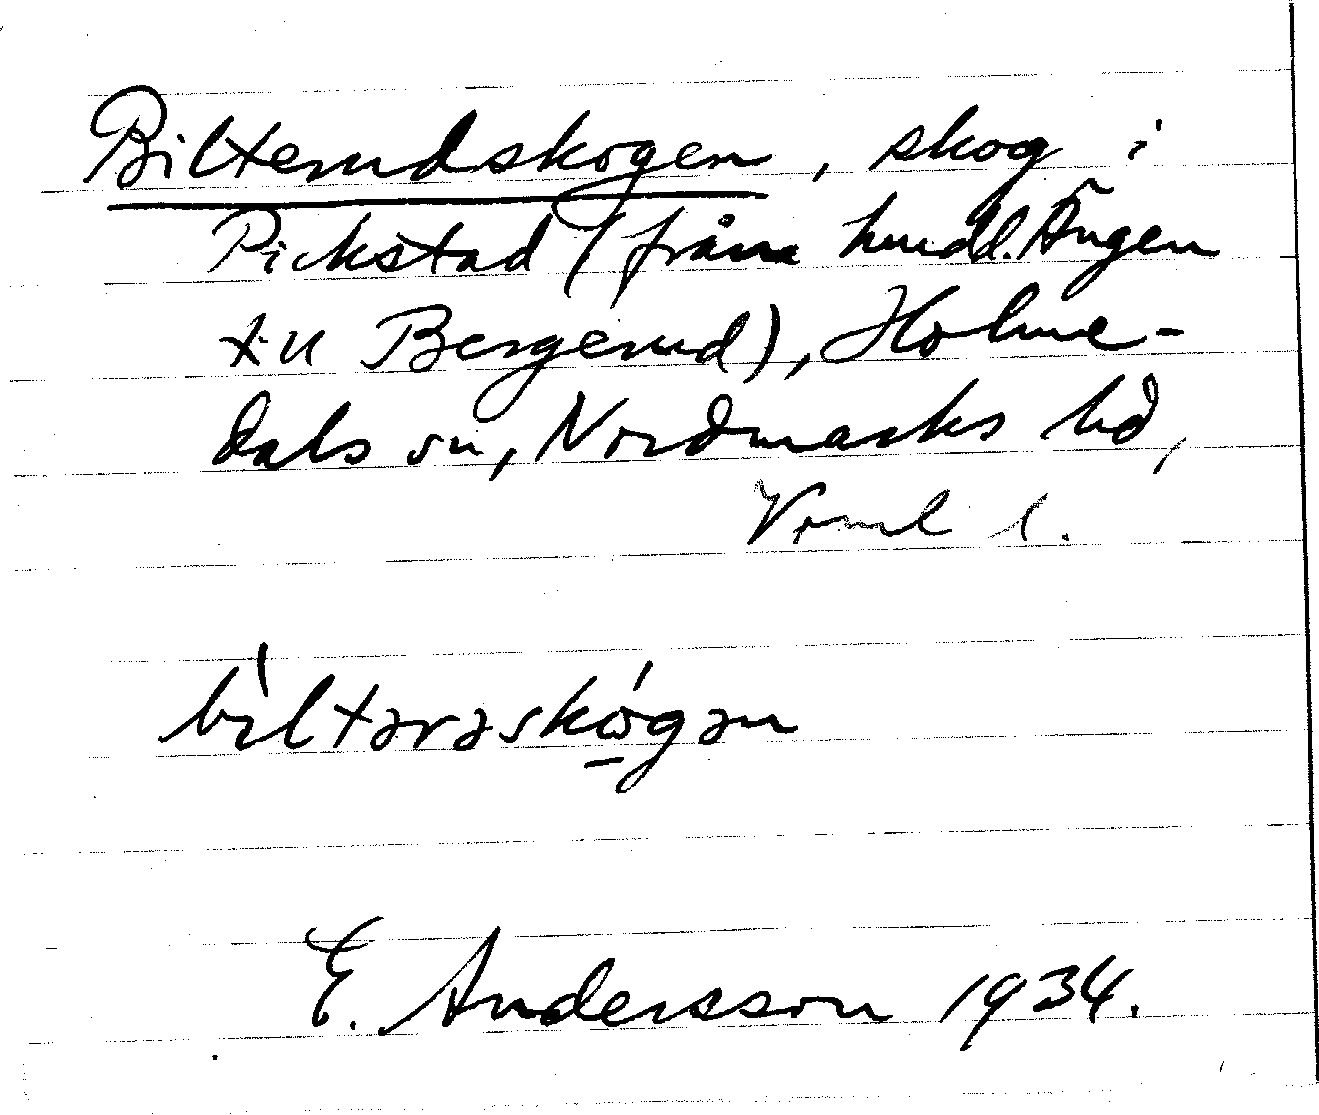 Bilterudskogen, skog i
Pickstad (från hmdl. Ängen
till Bergerud), Holme-
dals sn, Nordmarks hd,
Vrml l.
bìltərəskógən
E. Andersson 1934.